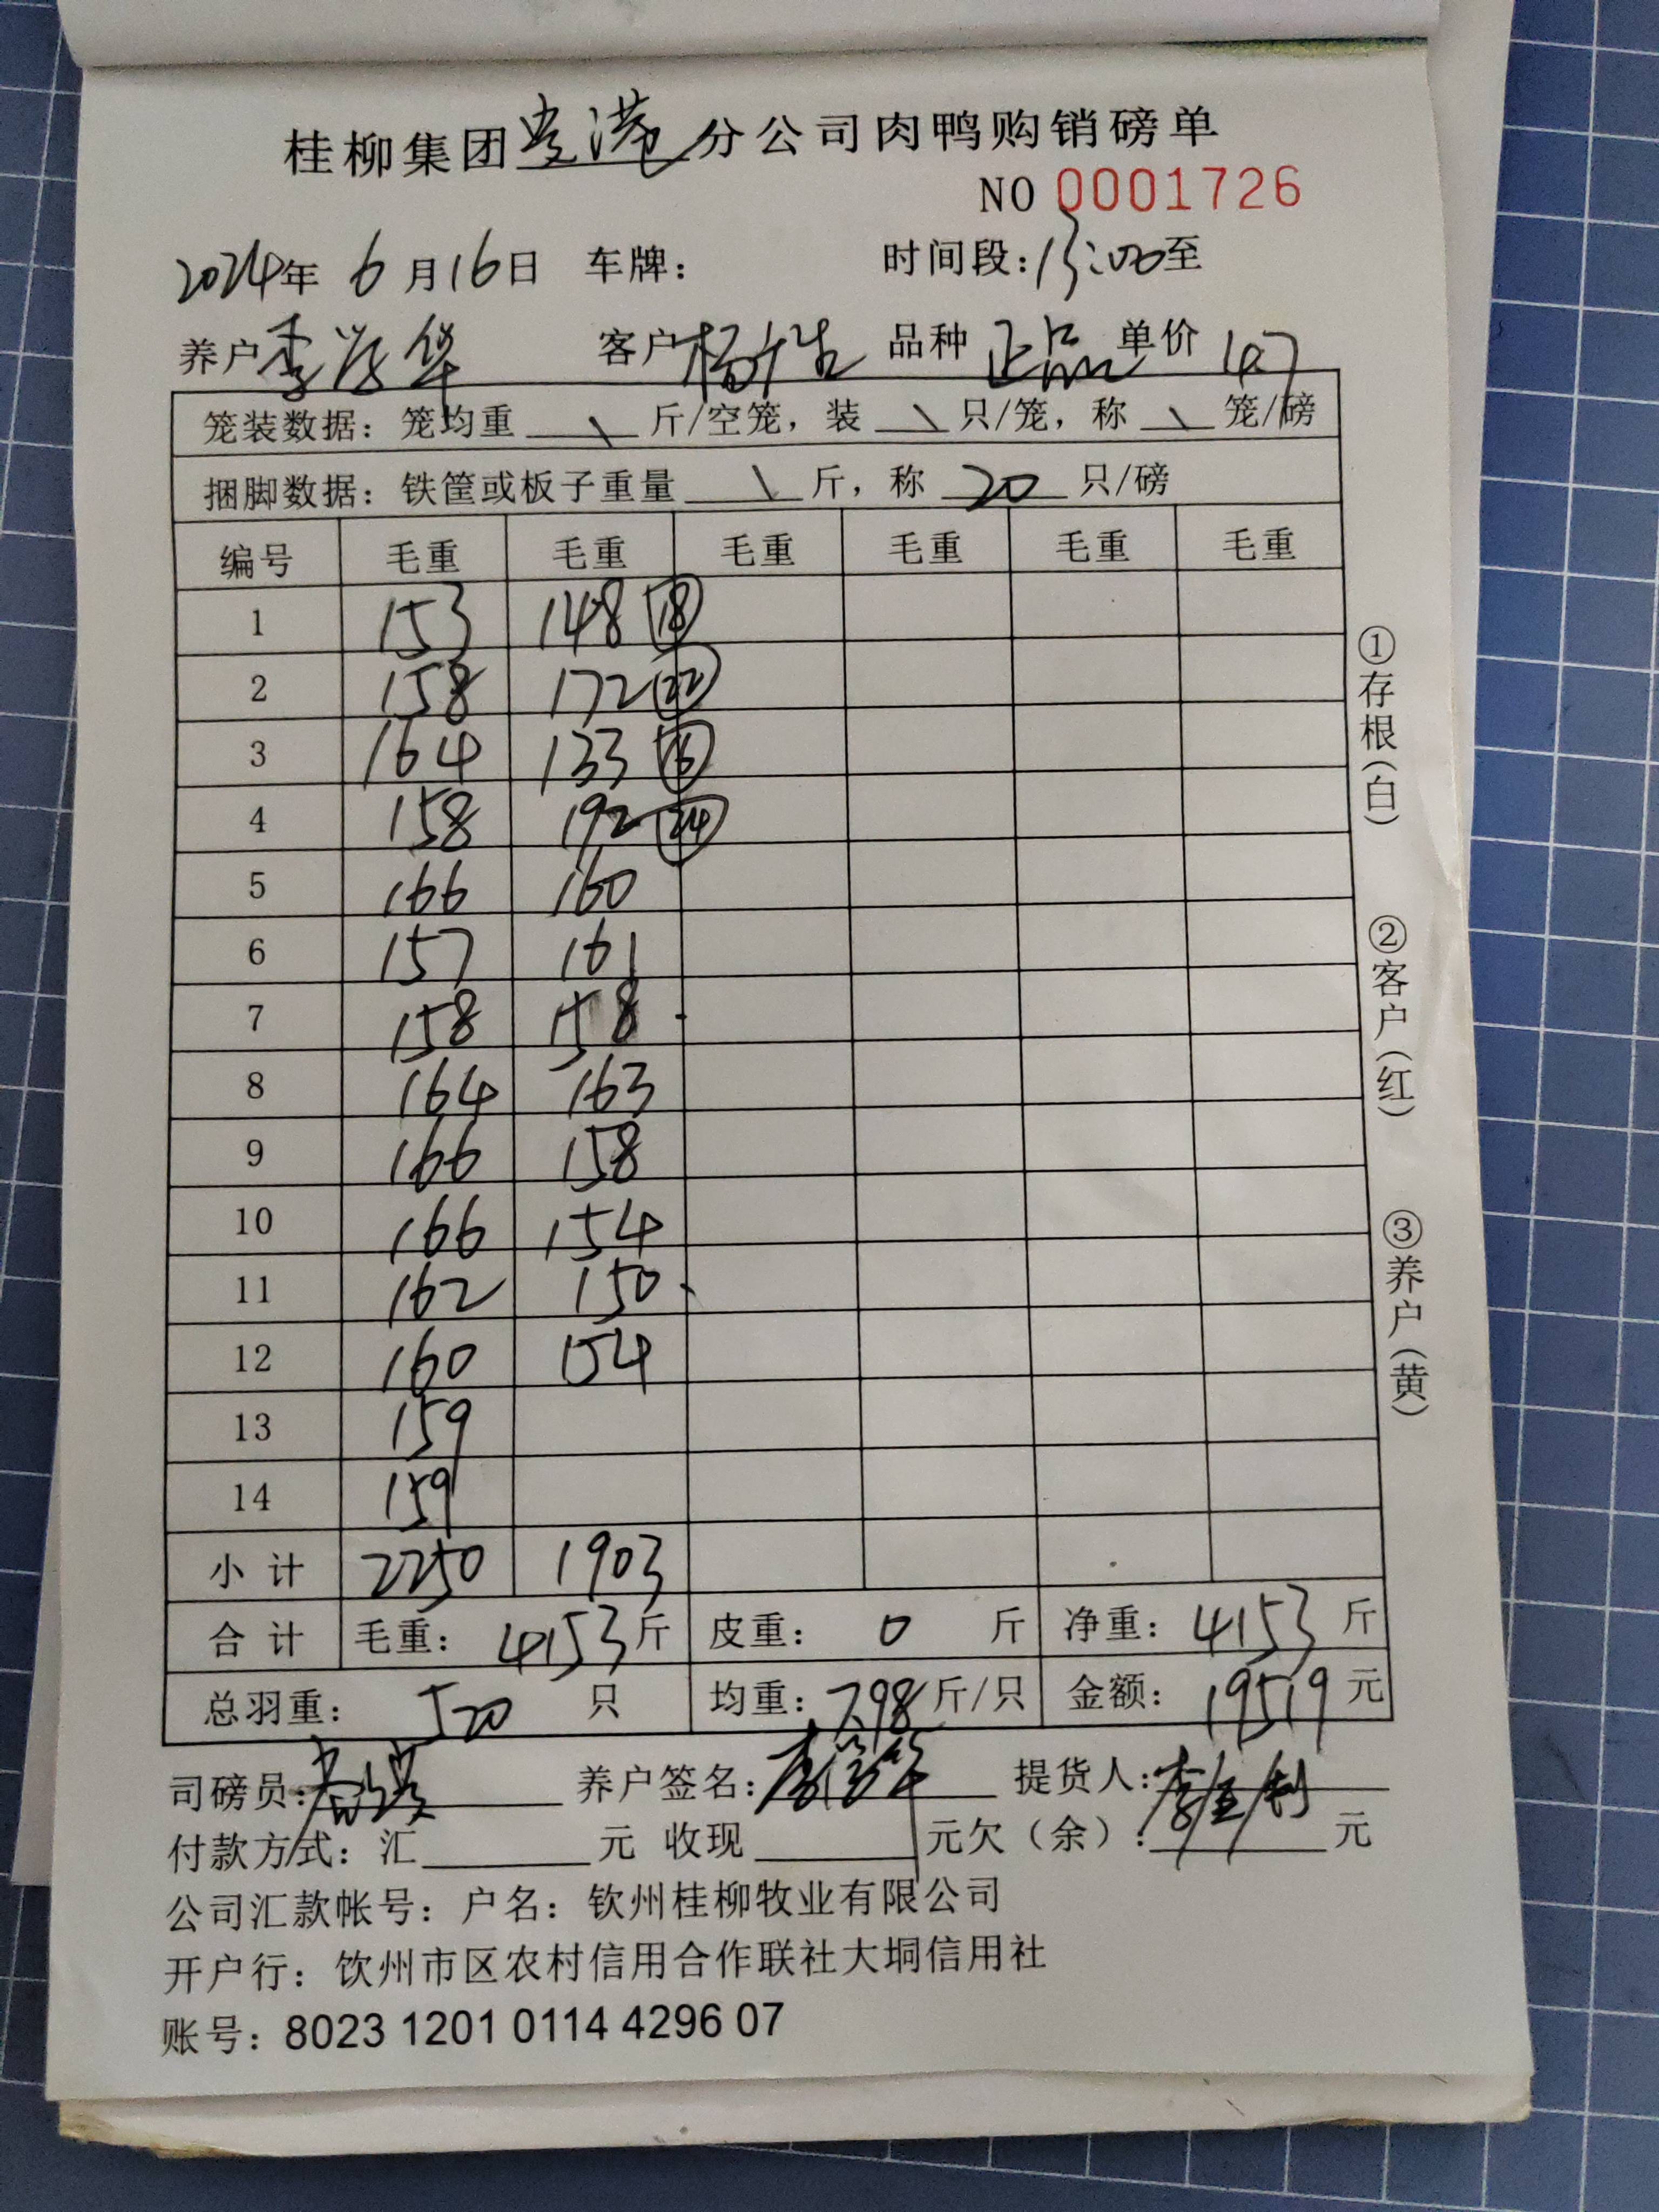 桂柳集团贵港分公司肉鸭购销磅单
NO 0001726
2024年 6月16日 车牌： 时间段：13:00至
养户 李 华 客户 杨 品种 正品 单价 4.7
笼装数据：笼均重 \ 斤/空笼，装 \ 只/笼，称 \ 笼/磅
捆脚数据：铁筐或板子重量 \ 斤，称 20 只/磅
编号 毛重 毛重 毛重 毛重 毛重 毛重
1 153 148 ⑱
2 158 172 ㉒
3 164 133 ⑯
4 158 192 ㉔
5 166 160
6 157 161
7 158 158
8 164 163
9 166 158
10 166 154
11 162 150
12 160 154
13 159
14 159
小计 2250 1903
合计 毛重：4153斤 皮重：0 斤 净重：4153 斤
总羽重：520 只 均重：7.98斤/只 金额：19519 元
司磅员： 养户签名：李 华 提货人：李 利
付款方式：汇 元 收现 元欠（余）： 元
公司汇款帐号：户名：钦州桂柳牧业有限公司
开户行：饮州市区农村信用合作联社大垌信用社
账号：8023 1201 0114 4296 07
①存根（白）
②客户（红）
③养户（黄）